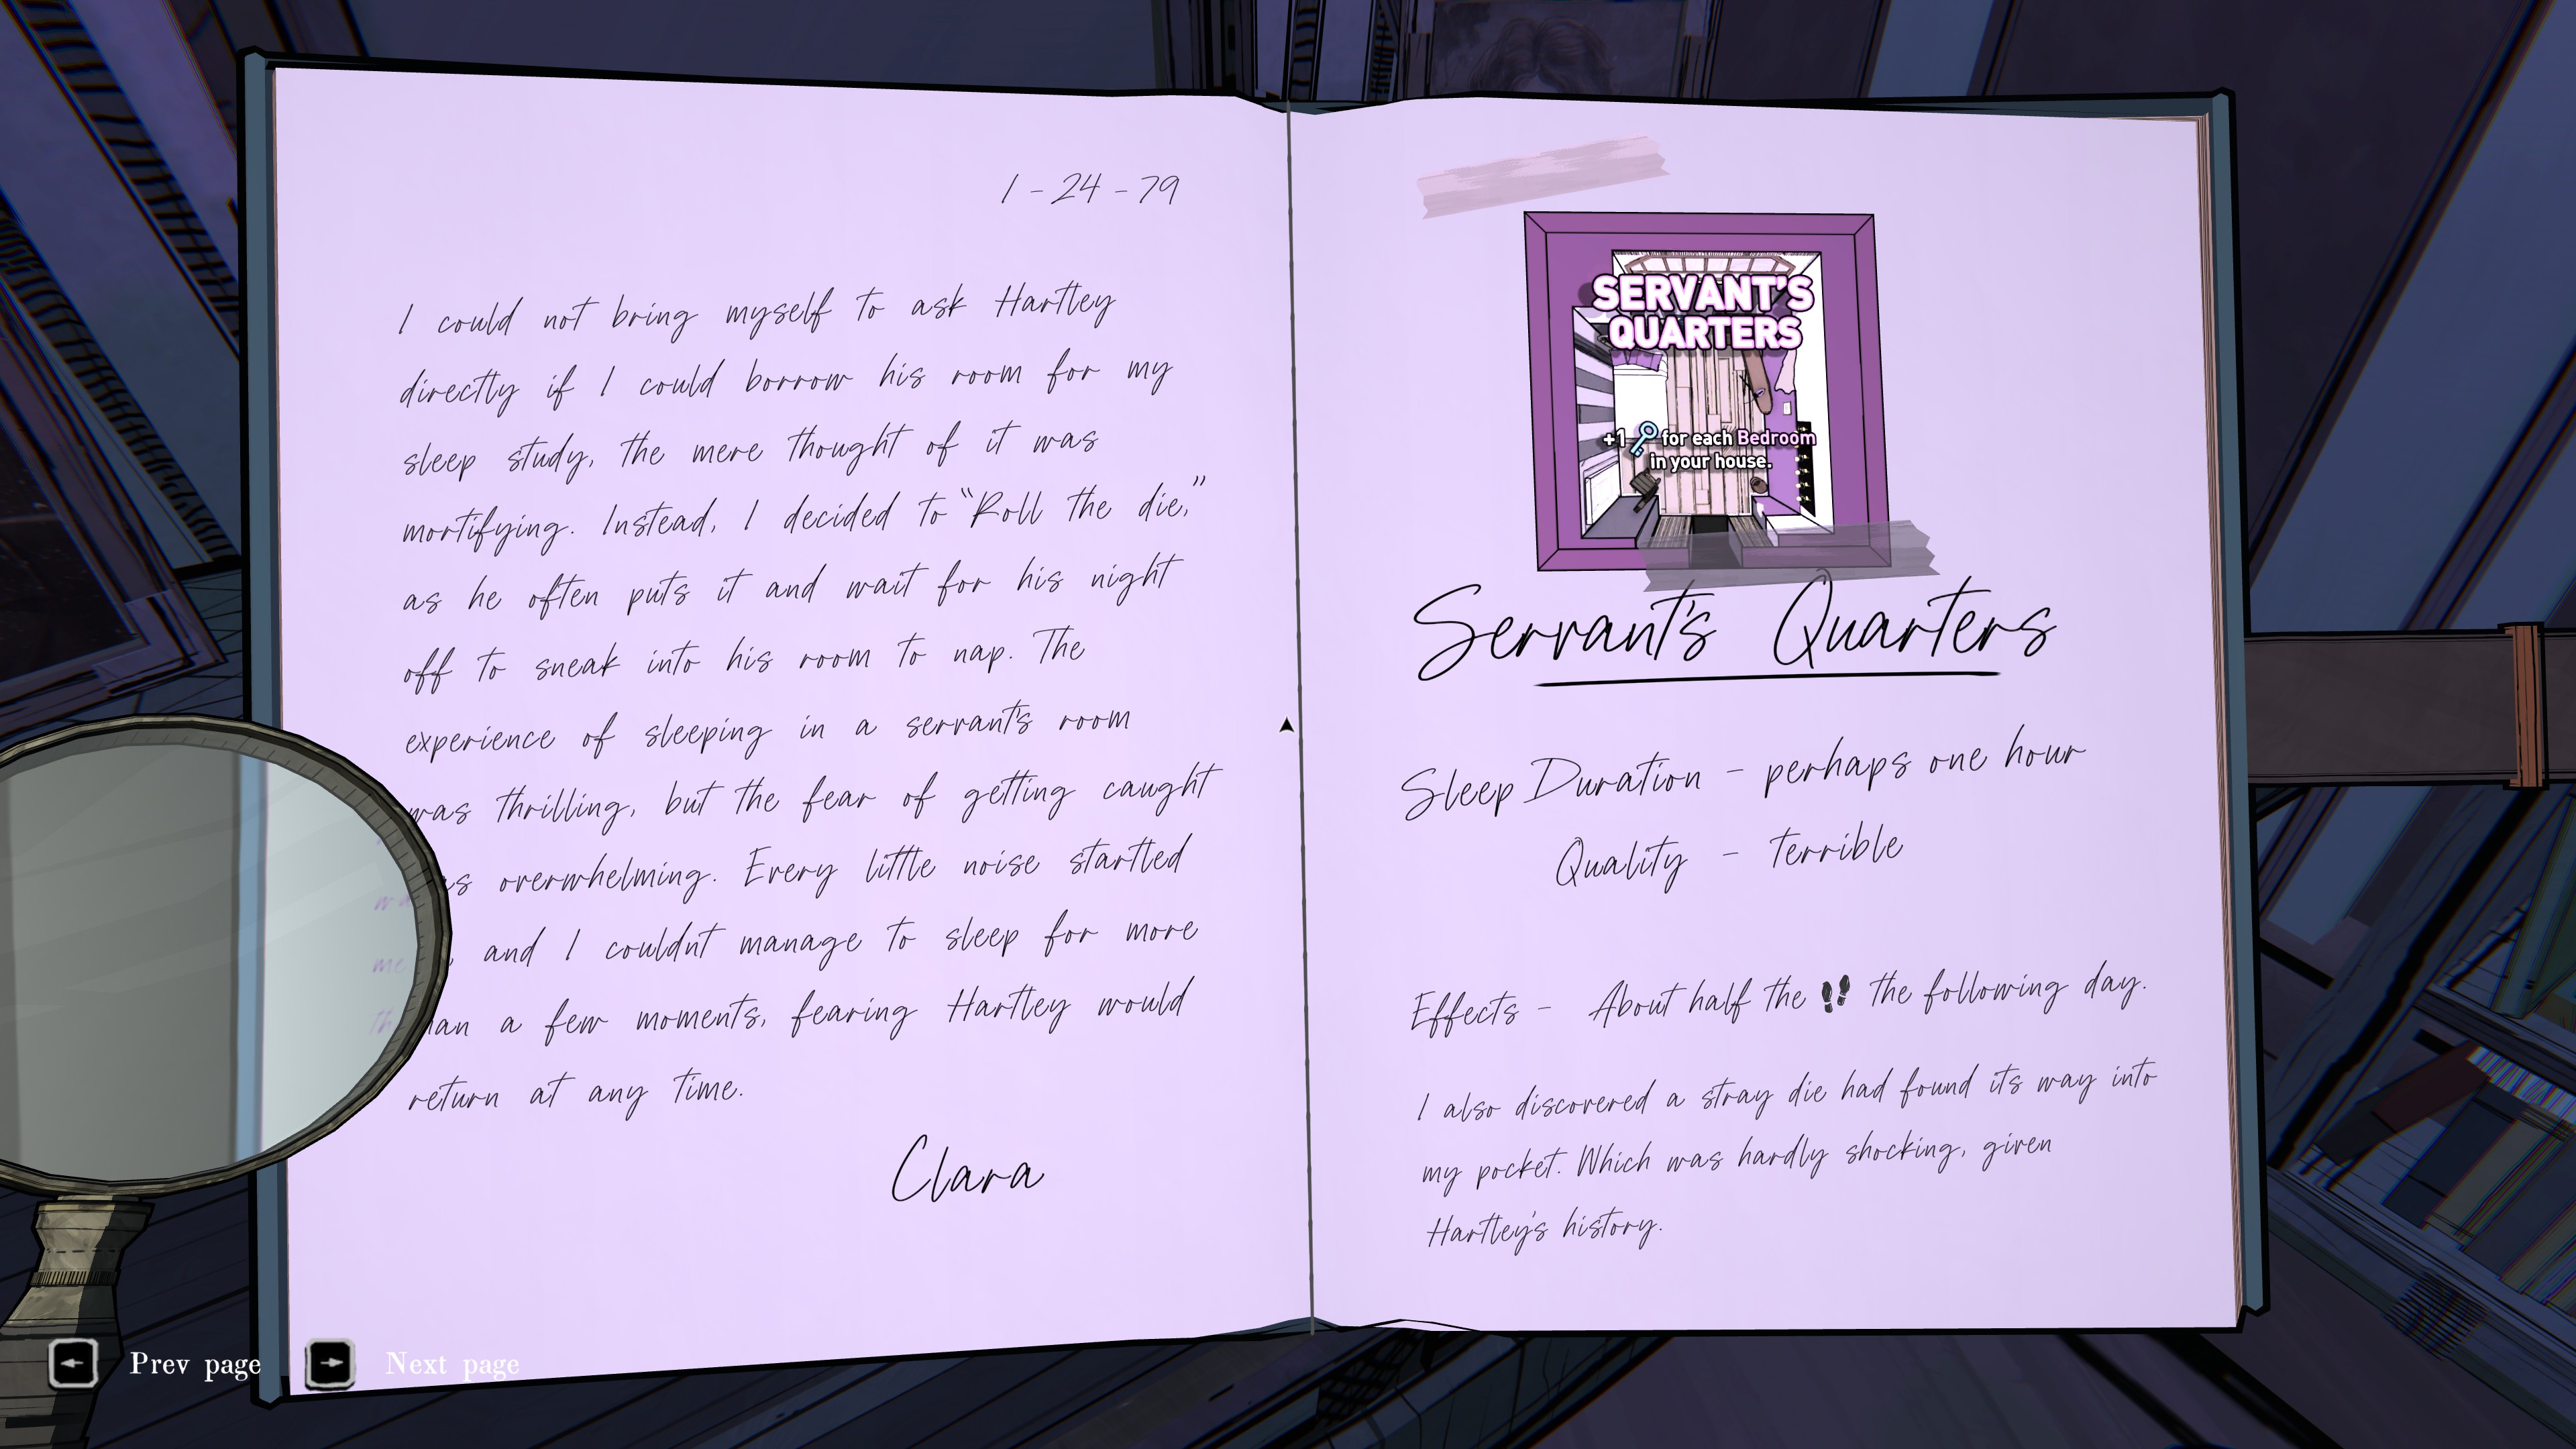 1 - 24 - 79
I could not bring myself to ask Hartley
directly if I could borrow his room for my
sleep study, the mere thought of it was
mortifying. Instead, I decided to "Roll the die,"
as he often puts it and wait for his night
off to sneak into his room to nap. The
experience of sleeping in a servant's room
was thrilling, but the fear of getting caught
as overwhelming. Every little noise startled
, and I couldn't manage to sleep for more
han a few moments, fearing Hartley would
return at any time.
Clara
SERVANT'S
QUARTERS
+1 for each Bedroom
in your house.
Servant's Quarters
Sleep Duration - perhaps one hour
Quality - terrible
Effects - About half the the following day.
I also discovered a stray die had found its way into
my pocket. Which was hardly shocking, given
Hartley's history.
Prev page
Next page